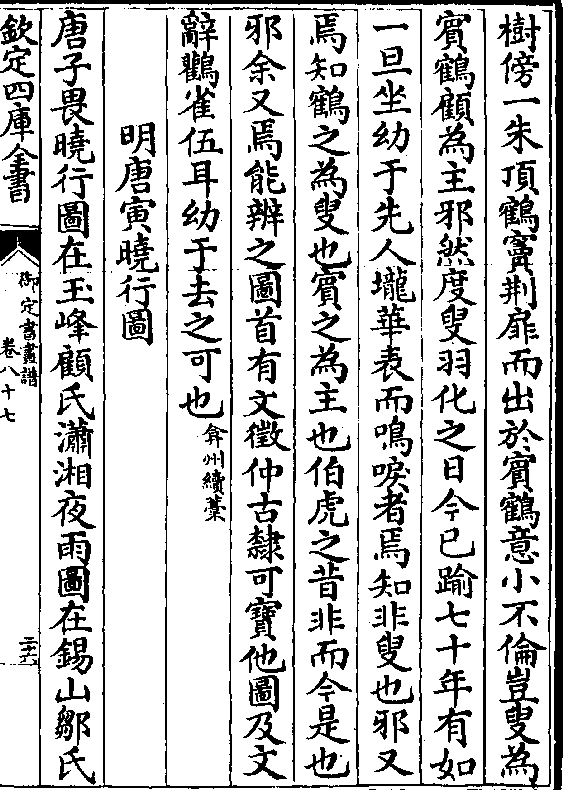 樹傍一朱頂鶴竇荆扉而出於賔鶴意小不倫豈叟為
賔鶴顧為主邪然度叟羽化之日今已踰七十年有如
一旦坐幼于先人壠華表而鳴唳者焉知非叟也邪又
焉知鶴之為叟也賔之為主也伯虎之昔非而今是也
邪余又焉能辨之圖首有文徵仲古隸可寶他圖及文
辭鸛雀伍耳幼于去之可也弇州續藁
明唐寅曉行圖
唐子畏曉行圖在玉峰顧氏瀟湘夜雨圖在錫山鄒氏
欽定四庫全書
御定書畫譜
卷八十七
二十六